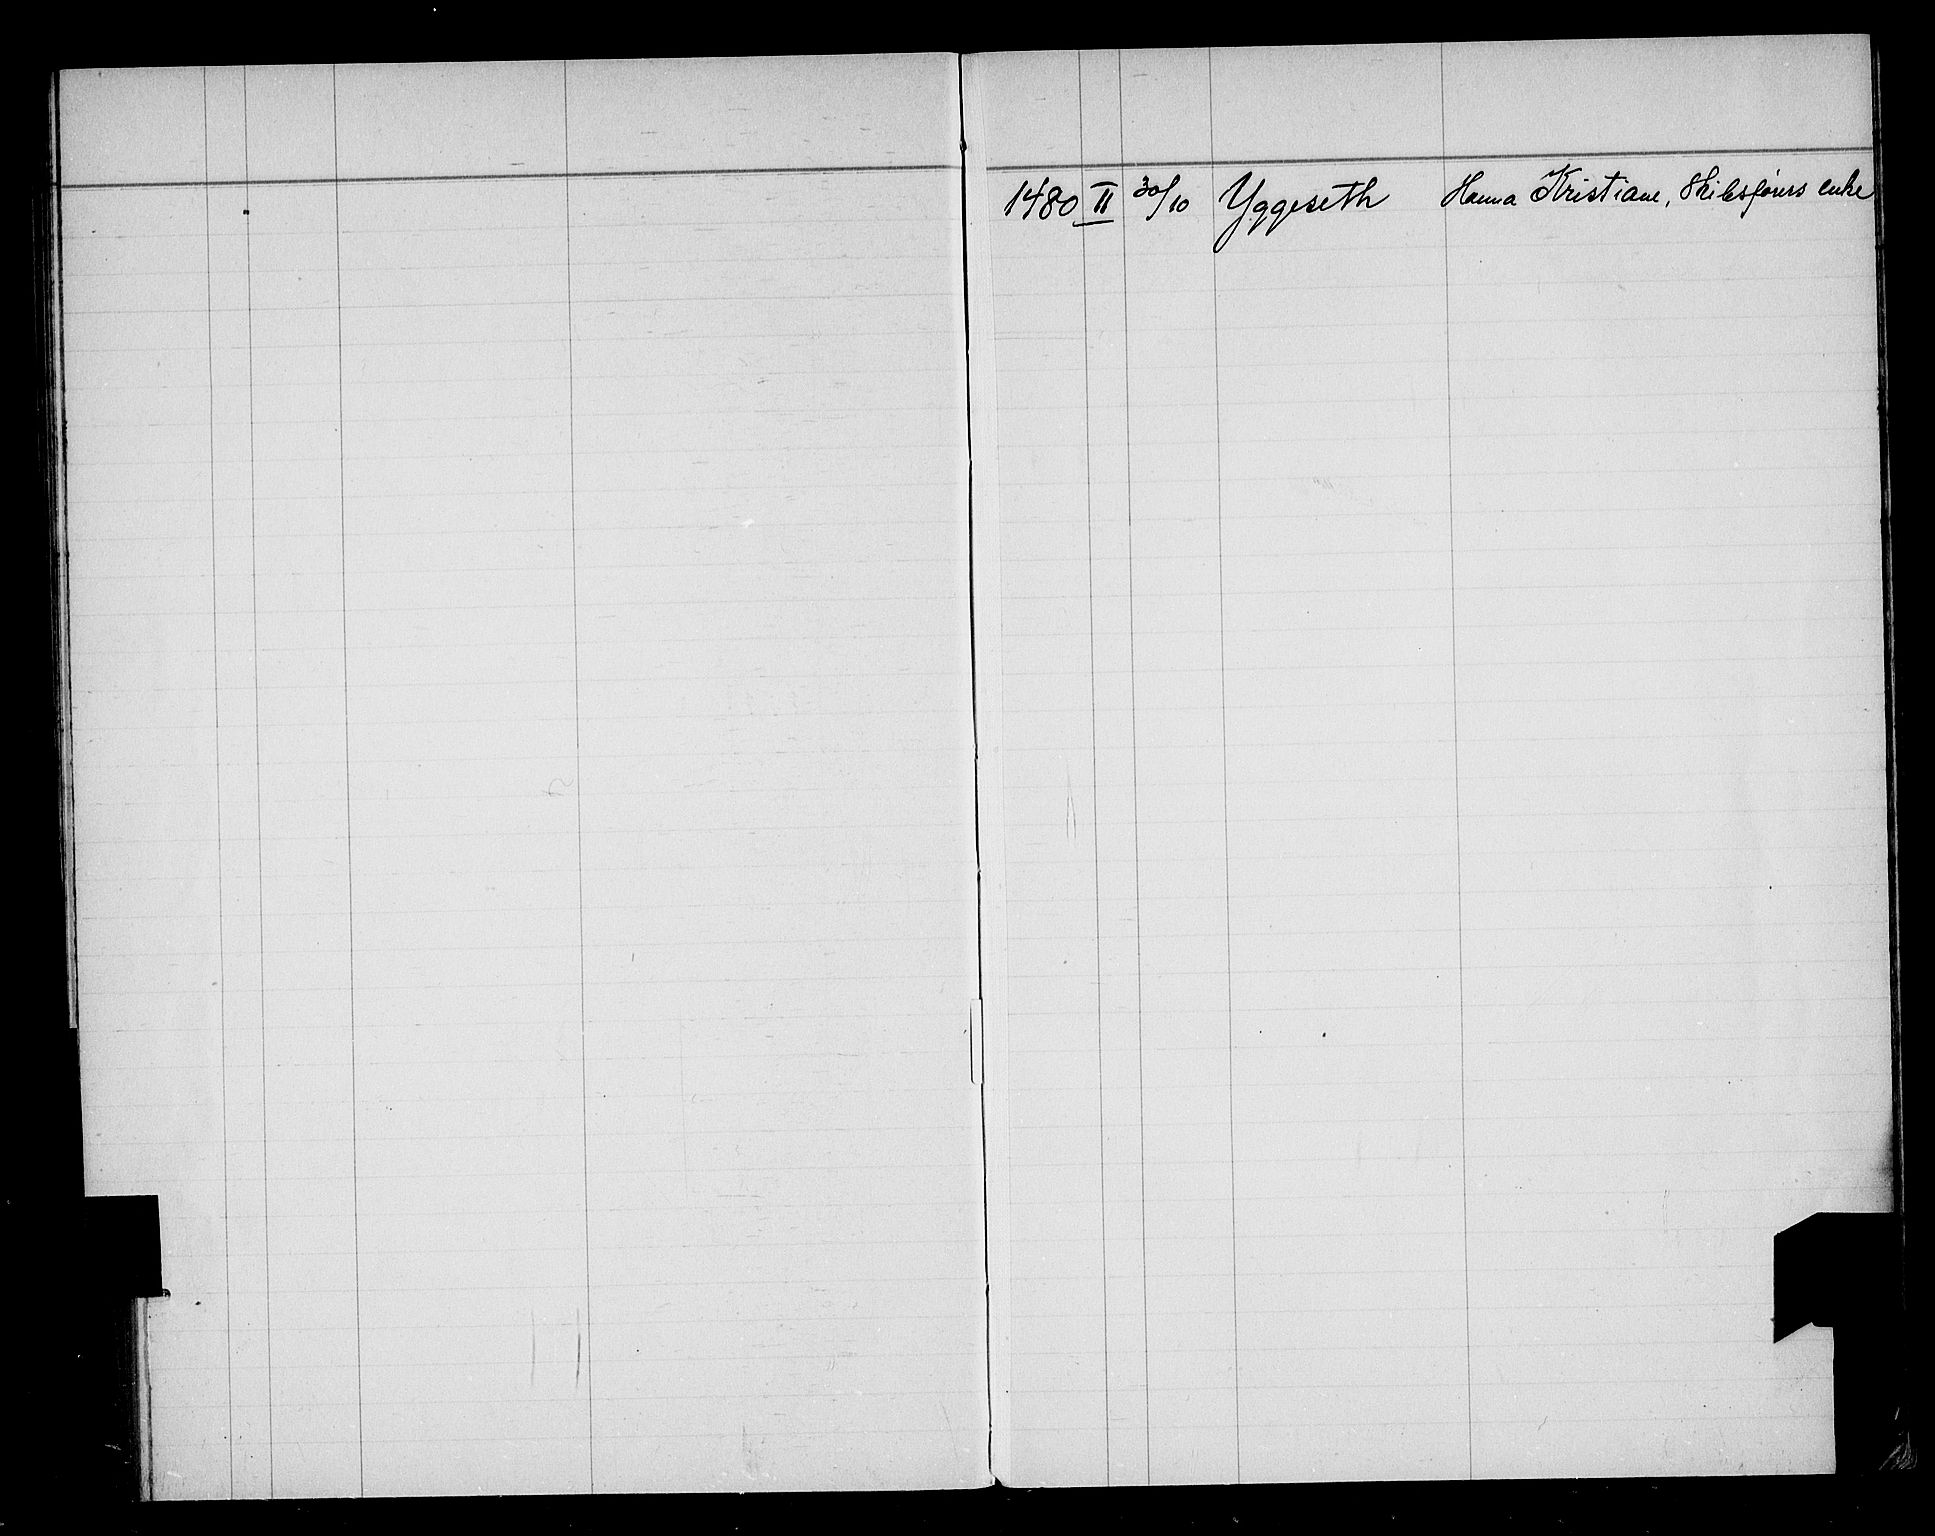 1480 II 30/10 Yggeseth Hanna Kristiane, Skibsførers enke